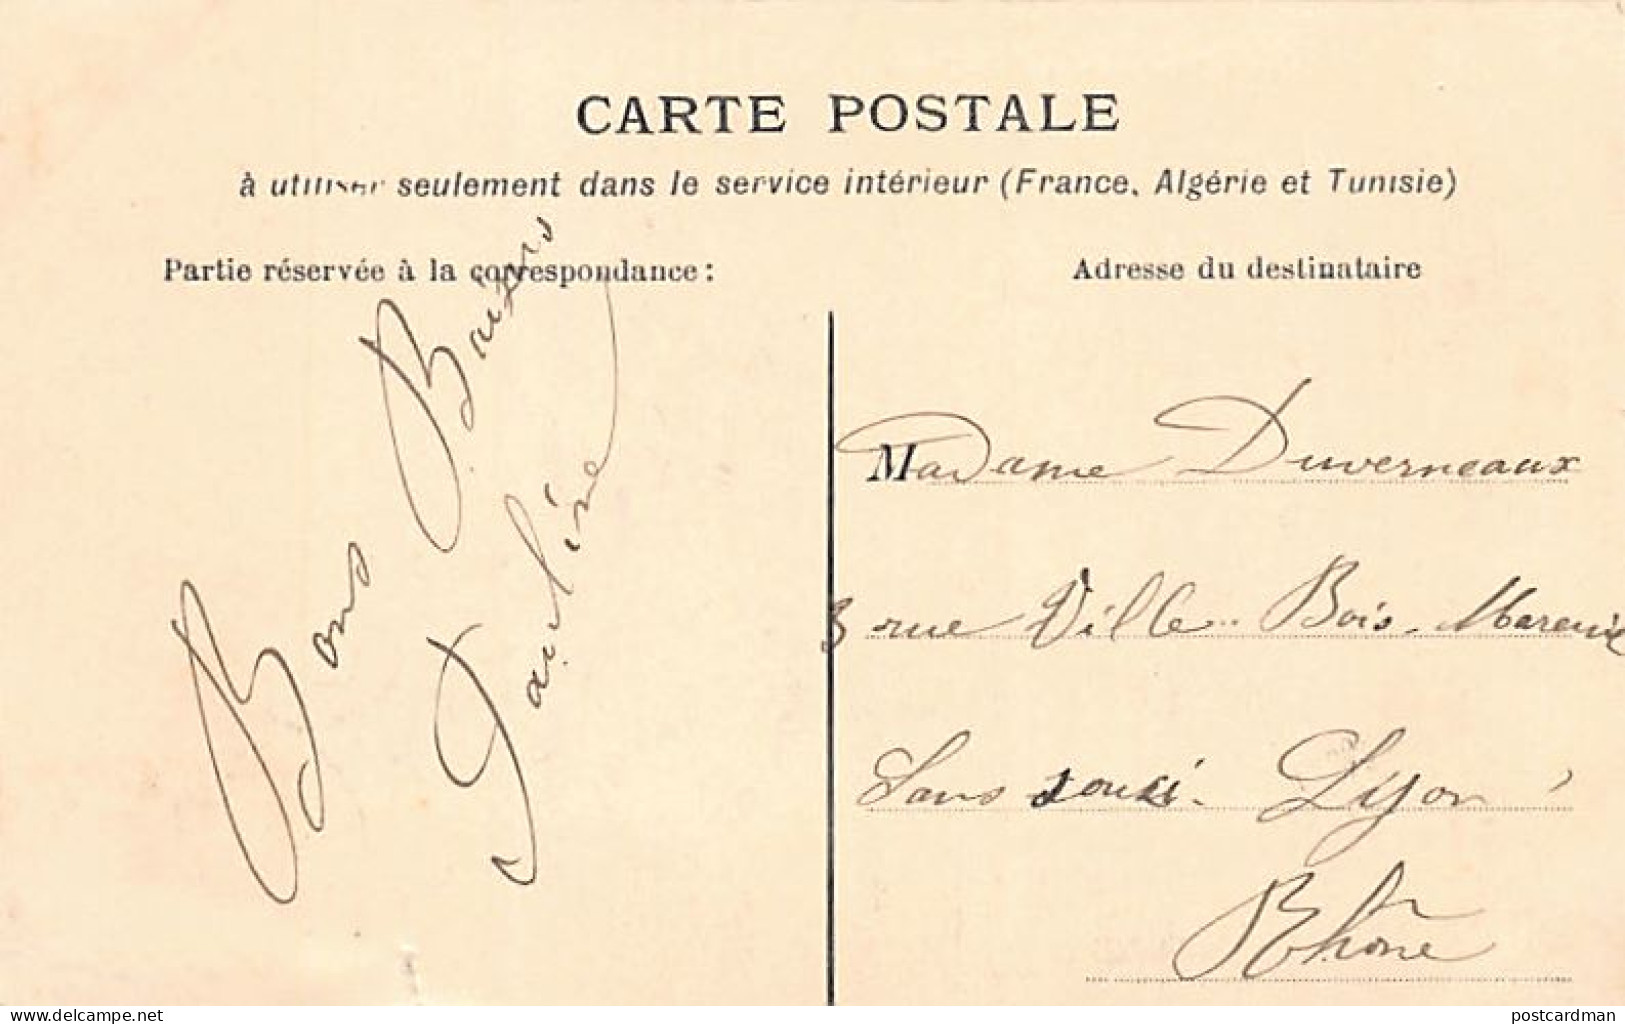 CARTE POSTALE
à utiliser seulement dans le service intérieur (France, Algérie et Tunisie)
Partie réservée à la correspondance :
Bons Baisers
Pauline
Adresse du destinataire
Madame Duverneaux
3 rue Ville Bois Mareuil
Sans souci. Lyon
Rhône
www.delcampe.net
postcardman